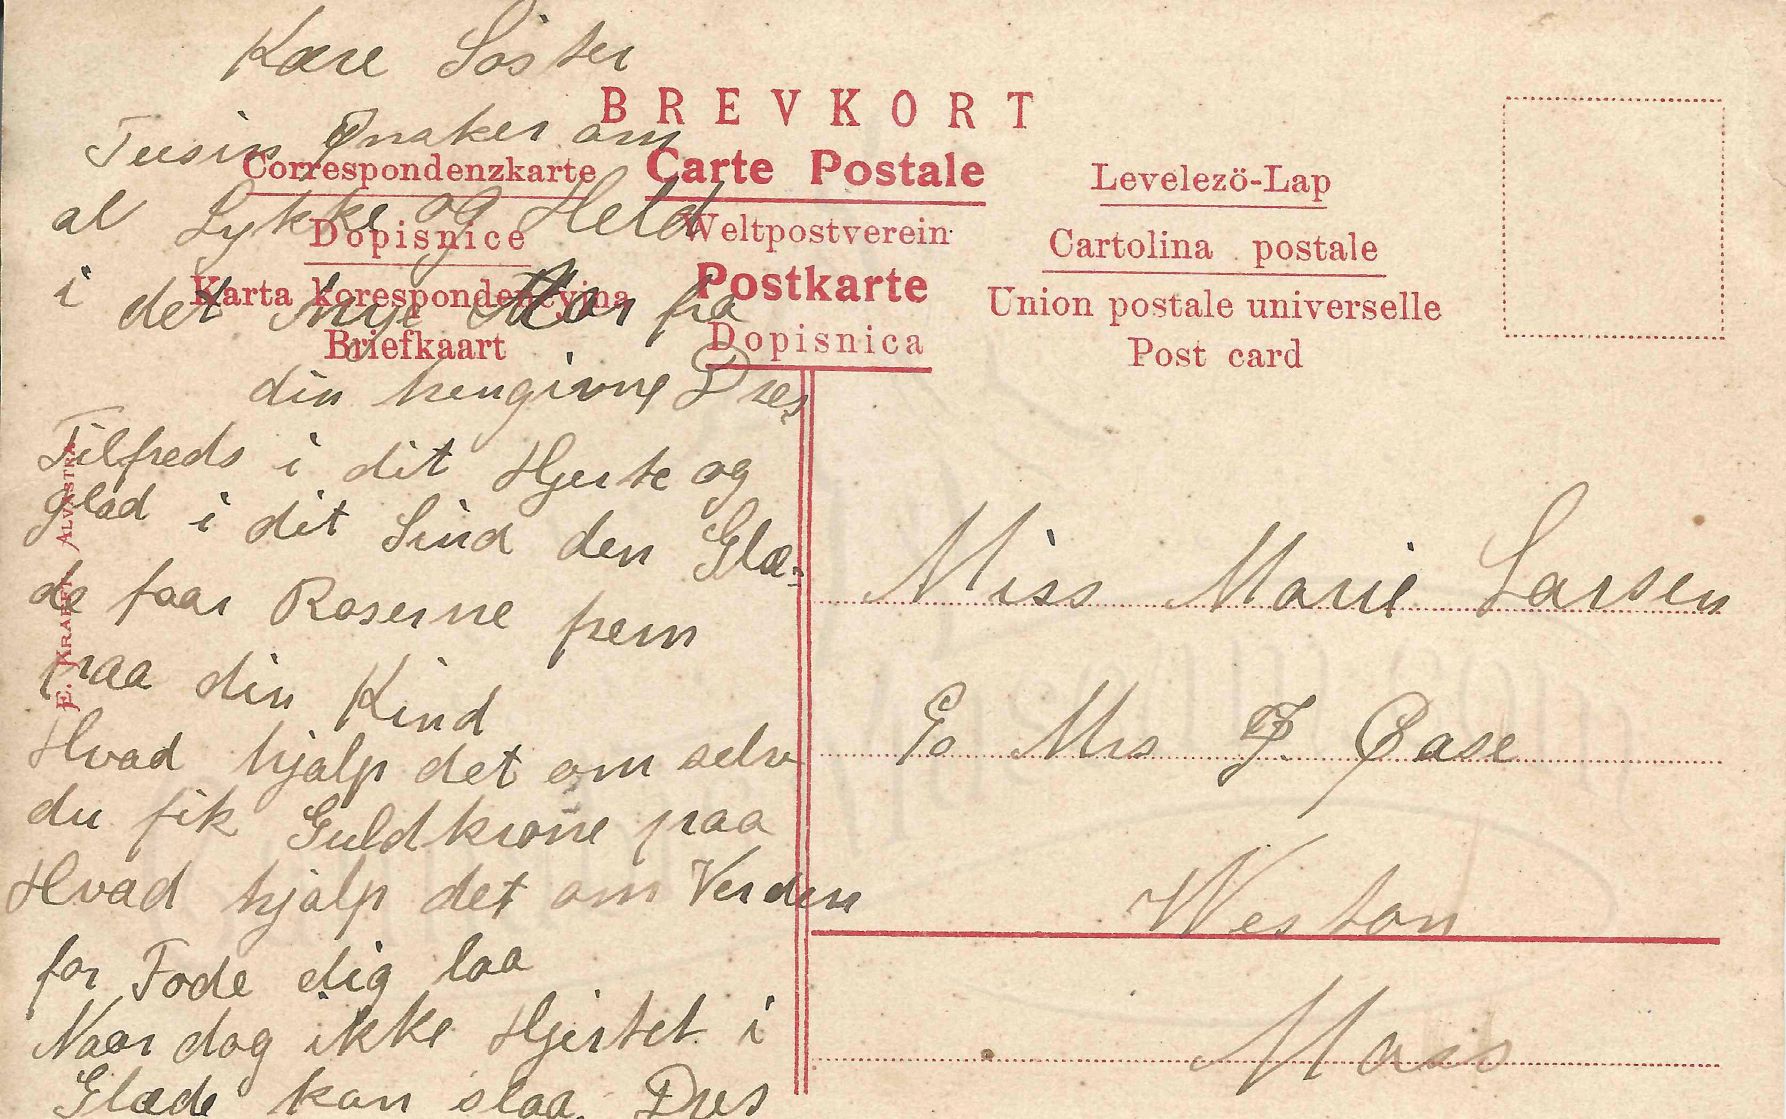 Kære Söster
Tusin Ønsker om
al Lykke og Held
i det Nye Aar fra
din hengivne
Tilfreds i dit Hjerte og
glad i dit Sind den Glæ-
de faar Roserne frem
paa din Kind
Hvad hjalp det om selv
du fik Guldkrone paa
Hvad hjalp det om Verden
for Fode dig laa
Naar dog ikke Hjertet i
Glæde kan slaa.
BREVKORT
Correspondenzkarte Carte Postale Levelezö-Lap
Dopisnice Weltpostverein Cartolina postale
Karta korespondencyjna Postkarte Union postale universelle
Briefkaart Dopisnica Post card
E. KRAEFT, ALVASTRA
Miss Marie Larsen
Mrs J. Case
Weston
Mass